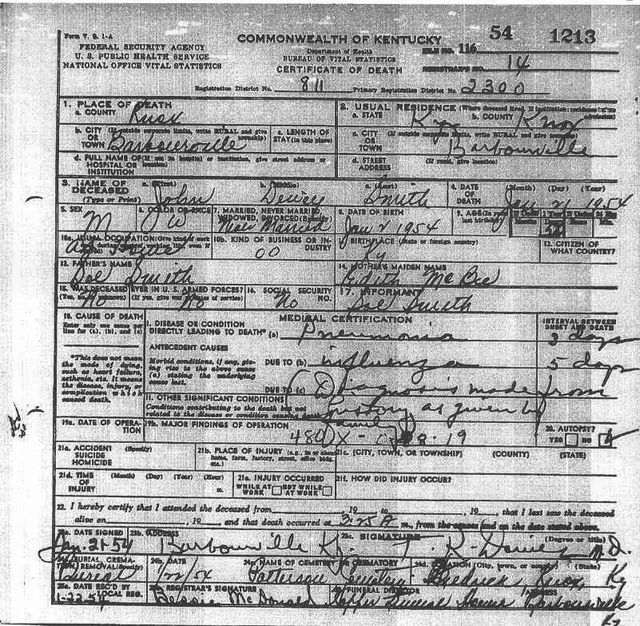 Form V. S. 1-A
FEDERAL SECURITY AGENCY
U. S. PUBLIC HEALTH SERVICE
NATIONAL OFFICE VITAL STATISTICS
COMMONWEALTH OF KENTUCKY
Department of Health
BUREAU OF VITAL STATISTICS
CERTIFICATE OF DEATH
FILE NO. 116 54 1213
REGISTRAR'S NO. 14
Registration District No. 811 Primary Registration District No. 2300
1. PLACE OF DEATH
a. COUNTY Knox
2. USUAL RESIDENCE (Where deceased lived. If institution: residence before admission)
a. STATE Ky b. COUNTY Knox
b. CITY OR TOWN (If outside corporate limits, write RURAL and give township) Barbourville
c. LENGTH OF STAY (in this place)
c. CITY OR TOWN (If outside corporate limits, write RURAL and give township) Barbourville
d. FULL NAME OF HOSPITAL OR INSTITUTION (If not in hospital or institution, give street address or location)
d. STREET ADDRESS (If rural, give location)
3. NAME OF DECEASED (Type or Print)
a. (First) John b. (Middle) Dewey c. (Last) Smith
4. DATE OF DEATH (Month) (Day) (Year) Jan 21 1954
5. SEX M
6. COLOR OR RACE W
7. MARRIED, NEVER MARRIED, WIDOWED, DIVORCED (Specify) Never Married
8. DATE OF BIRTH Jan 2 1954
9. AGE (In years last birthday)
10a. USUAL OCCUPATION
10b. KIND OF BUSINESS OR INDUSTRY 00
11. BIRTHPLACE (State or foreign country) Ky
12. CITIZEN OF WHAT COUNTRY?
13. FATHER'S NAME Smith
14. MOTHER'S MAIDEN NAME Edith McBee
15. WAS DECEASED EVER IN U. S. ARMED FORCES? No
16. SOCIAL SECURITY NO. No
17. INFORMANT Smith
18. CAUSE OF DEATH
Enter only one cause per line for (a), (b), and (c)
MEDICAL CERTIFICATION
INTERVAL BETWEEN ONSET AND DEATH
I. DISEASE OR CONDITION DIRECTLY LEADING TO DEATH* (a) Pneumonia 3 days
ANTECEDENT CAUSES
Morbid conditions, if any, giving rise to the above cause (a), stating the underlying cause last.
DUE TO (b) influenza 5 days
DUE TO (c) Diagnosis made from
*This does not mean the mode of dying, such as heart failure, asthenia, etc. It means the disease, injury, or complication which caused death.
II. OTHER SIGNIFICANT CONDITIONS
Conditions contributing to the death but not related to the disease or condition causing death.
history as given by
family
19a. DATE OF OPERATION
19b. MAJOR FINDINGS OF OPERATION
20. AUTOPSY? YES NO
21a. ACCIDENT SUICIDE HOMICIDE (Specify)
21b. PLACE OF INJURY (e.g., in or about home, farm, factory, street, office bldg., etc.)
21c. (CITY, TOWN, OR TOWNSHIP) (COUNTY) (STATE)
21d. TIME OF INJURY (Month) (Day) (Year) (Hour) m.
21e. INJURY OCCURRED WHILE AT WORK NOT WHILE AT WORK
21f. HOW DID INJURY OCCUR?
22. I hereby certify that I attended the deceased from , 19 , to , 19 , that I last saw the deceased
alive on , 19 , and that death occurred at 3:25 A m., from the causes and on the date stated above.
23a. DATE SIGNED Jan. 21-54
23b. ADDRESS Barbourville Ky.
23c. SIGNATURE (Degree or title) M.D.
24a. BURIAL, CREMATION, REMOVAL (Specify) Burial
24b. DATE
24c. NAME OF CEMETERY OR CREMATORY Patterson Cemetery
24d. LOCATION (City, town, or county) (State) Knox Ky
25a. DATE REC'D BY LOCAL REG. 1-22-54
25b. REGISTRAR'S SIGNATURE McDonald
26. FUNERAL DIRECTOR Funeral Home
ADDRESS Barbourville
Ky